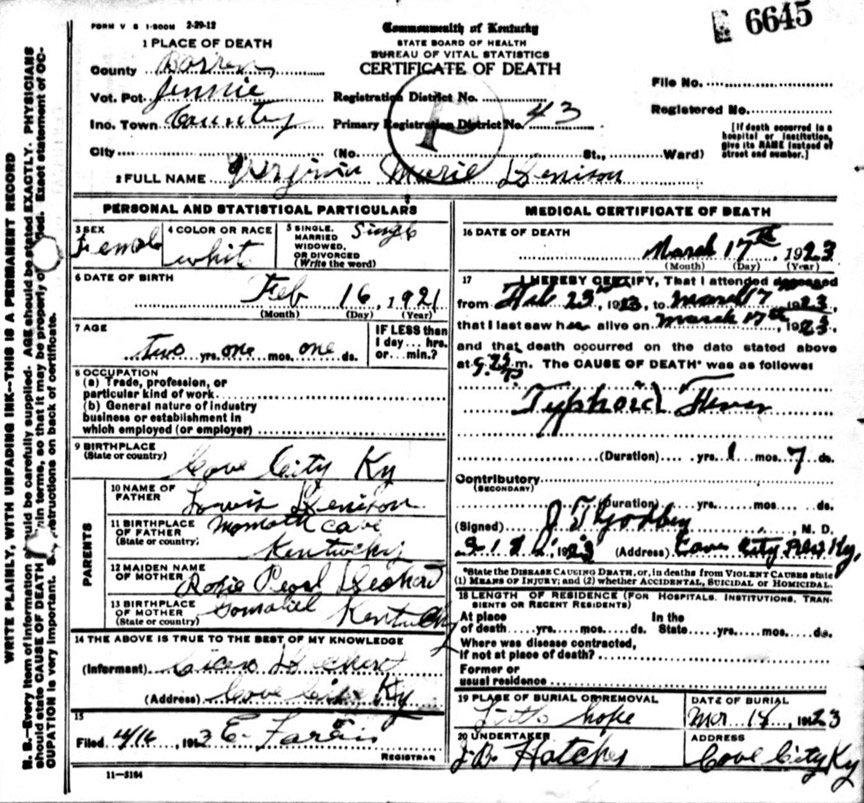 FORM V S 1-500M 2-29-12
6645
Commonwealth of Kentucky
STATE BOARD OF HEALTH
BUREAU OF VITAL STATISTICS
CERTIFICATE OF DEATH
1 PLACE OF DEATH
County Barren
Vot. Pct. Jennie
Inc. Town County
City
Registration District No.
Primary Registration District No. 43
File No.
Registered No.
[If death occurred in a hospital or institution, give its NAME instead of street and number.]
(No. St., Ward)
2 FULL NAME Virginia Marie Denison
PERSONAL AND STATISTICAL PARTICULARS
3 SEX Female
4 COLOR OR RACE whit
5 SINGLE, MARRIED WIDOWED, OR DIVORCED (Write the word) Single
6 DATE OF BIRTH
Feb 16, 1921
(Month) (Day) (Year)
7 AGE
two yrs. one mos. one ds.
IF LESS than 1 day... hrs. or... min.?
8 OCCUPATION
(a) Trade, profession, or particular kind of work
(b) General nature of industry business or establishment in which employed (or employer)
9 BIRTHPLACE
(State or country) Cave City Ky
PARENTS
10 NAME OF FATHER Lewis Denison
11 BIRTHPLACE OF FATHER (State or country) Momoth Cave Kentucky
12 MAIDEN NAME OF MOTHER Rosie Pearl
13 BIRTHPLACE OF MOTHER (State or country) Kentucky
14 THE ABOVE IS TRUE TO THE BEST OF MY KNOWLEDGE
(Informant) Cicero
(Address) Cave City Ky
15
Filed 4/16, 1913 E. Faris
REGISTRAR
11—3184
MEDICAL CERTIFICATE OF DEATH
16 DATE OF DEATH
March 17th, 1923
(Month) (Day) (Year)
17 I HEREBY CERTIFY, That I attended deceased
from Feb 23rd, 1923, to March 17, 1923,
that I last saw her alive on March 17th, 1923.
and that death occurred on the date stated above
at m. The CAUSE OF DEATH* was as follows:
Typhoid Fever
(Duration) yrs. 1 mos. 7 ds.
Contributory
(SECONDARY)
(Duration) yrs. mos. ds.
(Signed) J T Godbey, M. D.
1923 (Address) Cave City Ky.
*State the DISEASE CAUSING DEATH, or, in deaths from VIOLENT CAUSES state (1) MEANS OF INJURY; and (2) whether ACCIDENTAL, SUICIDAL or HOMICIDAL.
18 LENGTH OF RESIDENCE (FOR HOSPITALS, INSTITUTIONS, TRANSIENTS OR RECENT RESIDENTS)
At place of death yrs. mos. ds. In the State yrs. mos. ds.
Where was disease contracted, if not at place of death?
Former or usual residence
19 PLACE OF BURIAL OR REMOVAL Little hope
DATE OF BURIAL Mar 18, 1923
20 UNDERTAKER J. B. Hatcher
ADDRESS Cave City Ky
WRITE PLAINLY, WITH UNFADING INK—THIS IS A PERMANENT RECORD
N. B.—Every item of information should be carefully supplied. AGE should be stated EXACTLY. PHYSICIANS
should state CAUSE OF DEATH in terms, so that it may be properly. Exact statement of OC-
CUPATION is very important. See instructions on back of certificate.